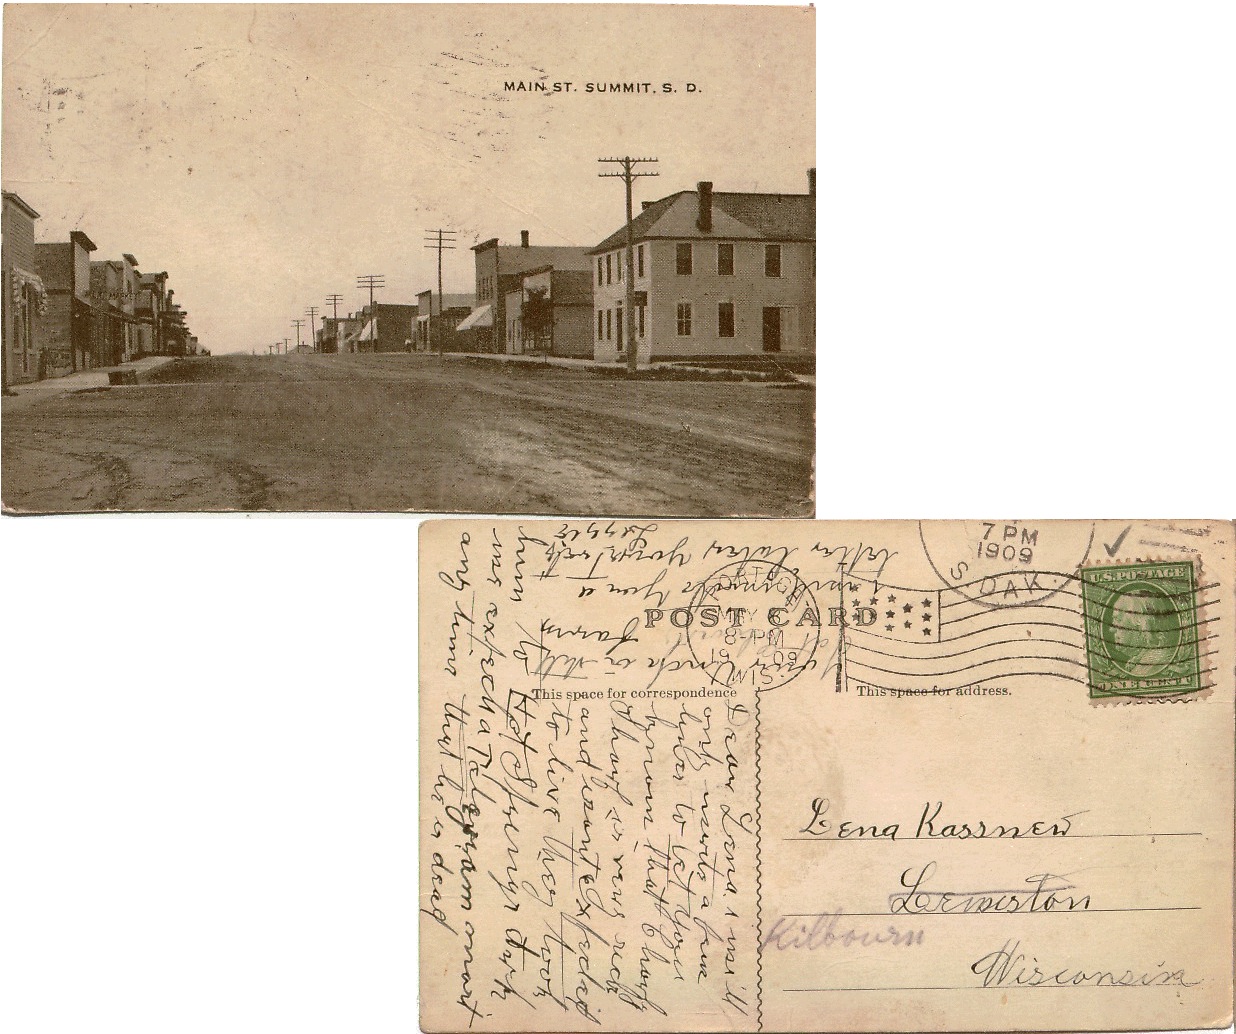 MAIN ST. SUMMIT, S. D.
MARKET
7 PM
1909
S. DAK.
U.S. POSTAGE
ONE CENT
PORTAGE
MAY
8-PM
1909
WIS.
POST CARD
This space for correspondence
This space for address.
Dear Lena. I will
only write a few
lines to let you
know that Charly
Sharf is very sick
and isant Exspected
to live they took
him to Hot Springs Ark
we exspect a Telegram almost
any time that he is dead
your Uncle is still
Farm
you a
letter later yours truly
Lena Kassner
Lewiston
Kilbourn
Wisconsin